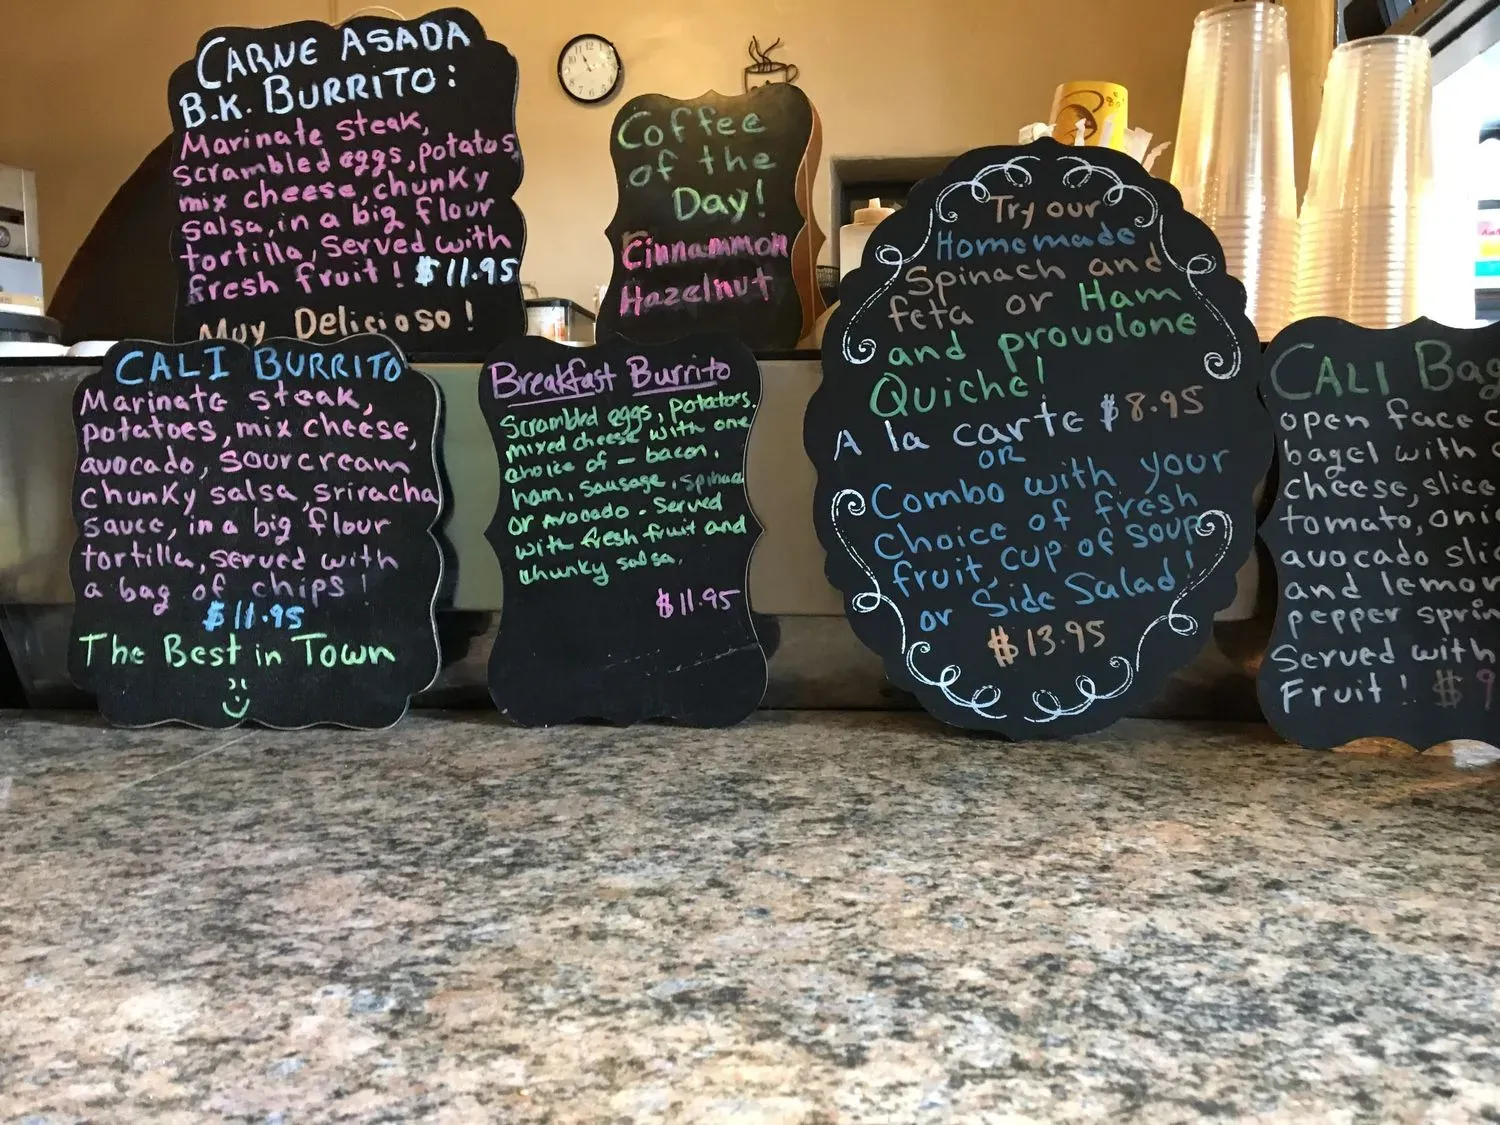 CARNE ASADA
B.K. BURRITO:
Marinate steak,
scrambled eggs, potatos,
mix cheese, chunky
salsa, in a big flour
tortilla, served with
fresh fruit! $11.95
Muy Delicioso!
Coffee
of the
Day!
Cinnammon
Hazelnut
CALI BURRITO
Marinate steak,
potatoes, mix cheese,
avocado, sourcream
chunky salsa, sriracha
sauce, in a big flour
tortilla, served with
a bag of chips!
$11.95
The Best in Town
Breakfast Burrito
Scrambled eggs, potatoes.
mixed cheese with one
choice of - bacon,
ham, sausage, spinach
or Avocado. Served
with fresh fruit and
chunky salsa.
$11.95
Try our
Homemade
Spinach and
feta or Ham
and provolone
Quiche!
A la carte $8.95
OR
Combo with your
choice of fresh
fruit, cup of soup
or Side Salad!
$13.95
CALI Bag
open face
bagel with
cheese, slice
tomato, oni
avocado slic
and lemon
pepper sprin
Served with
Fruit! $9